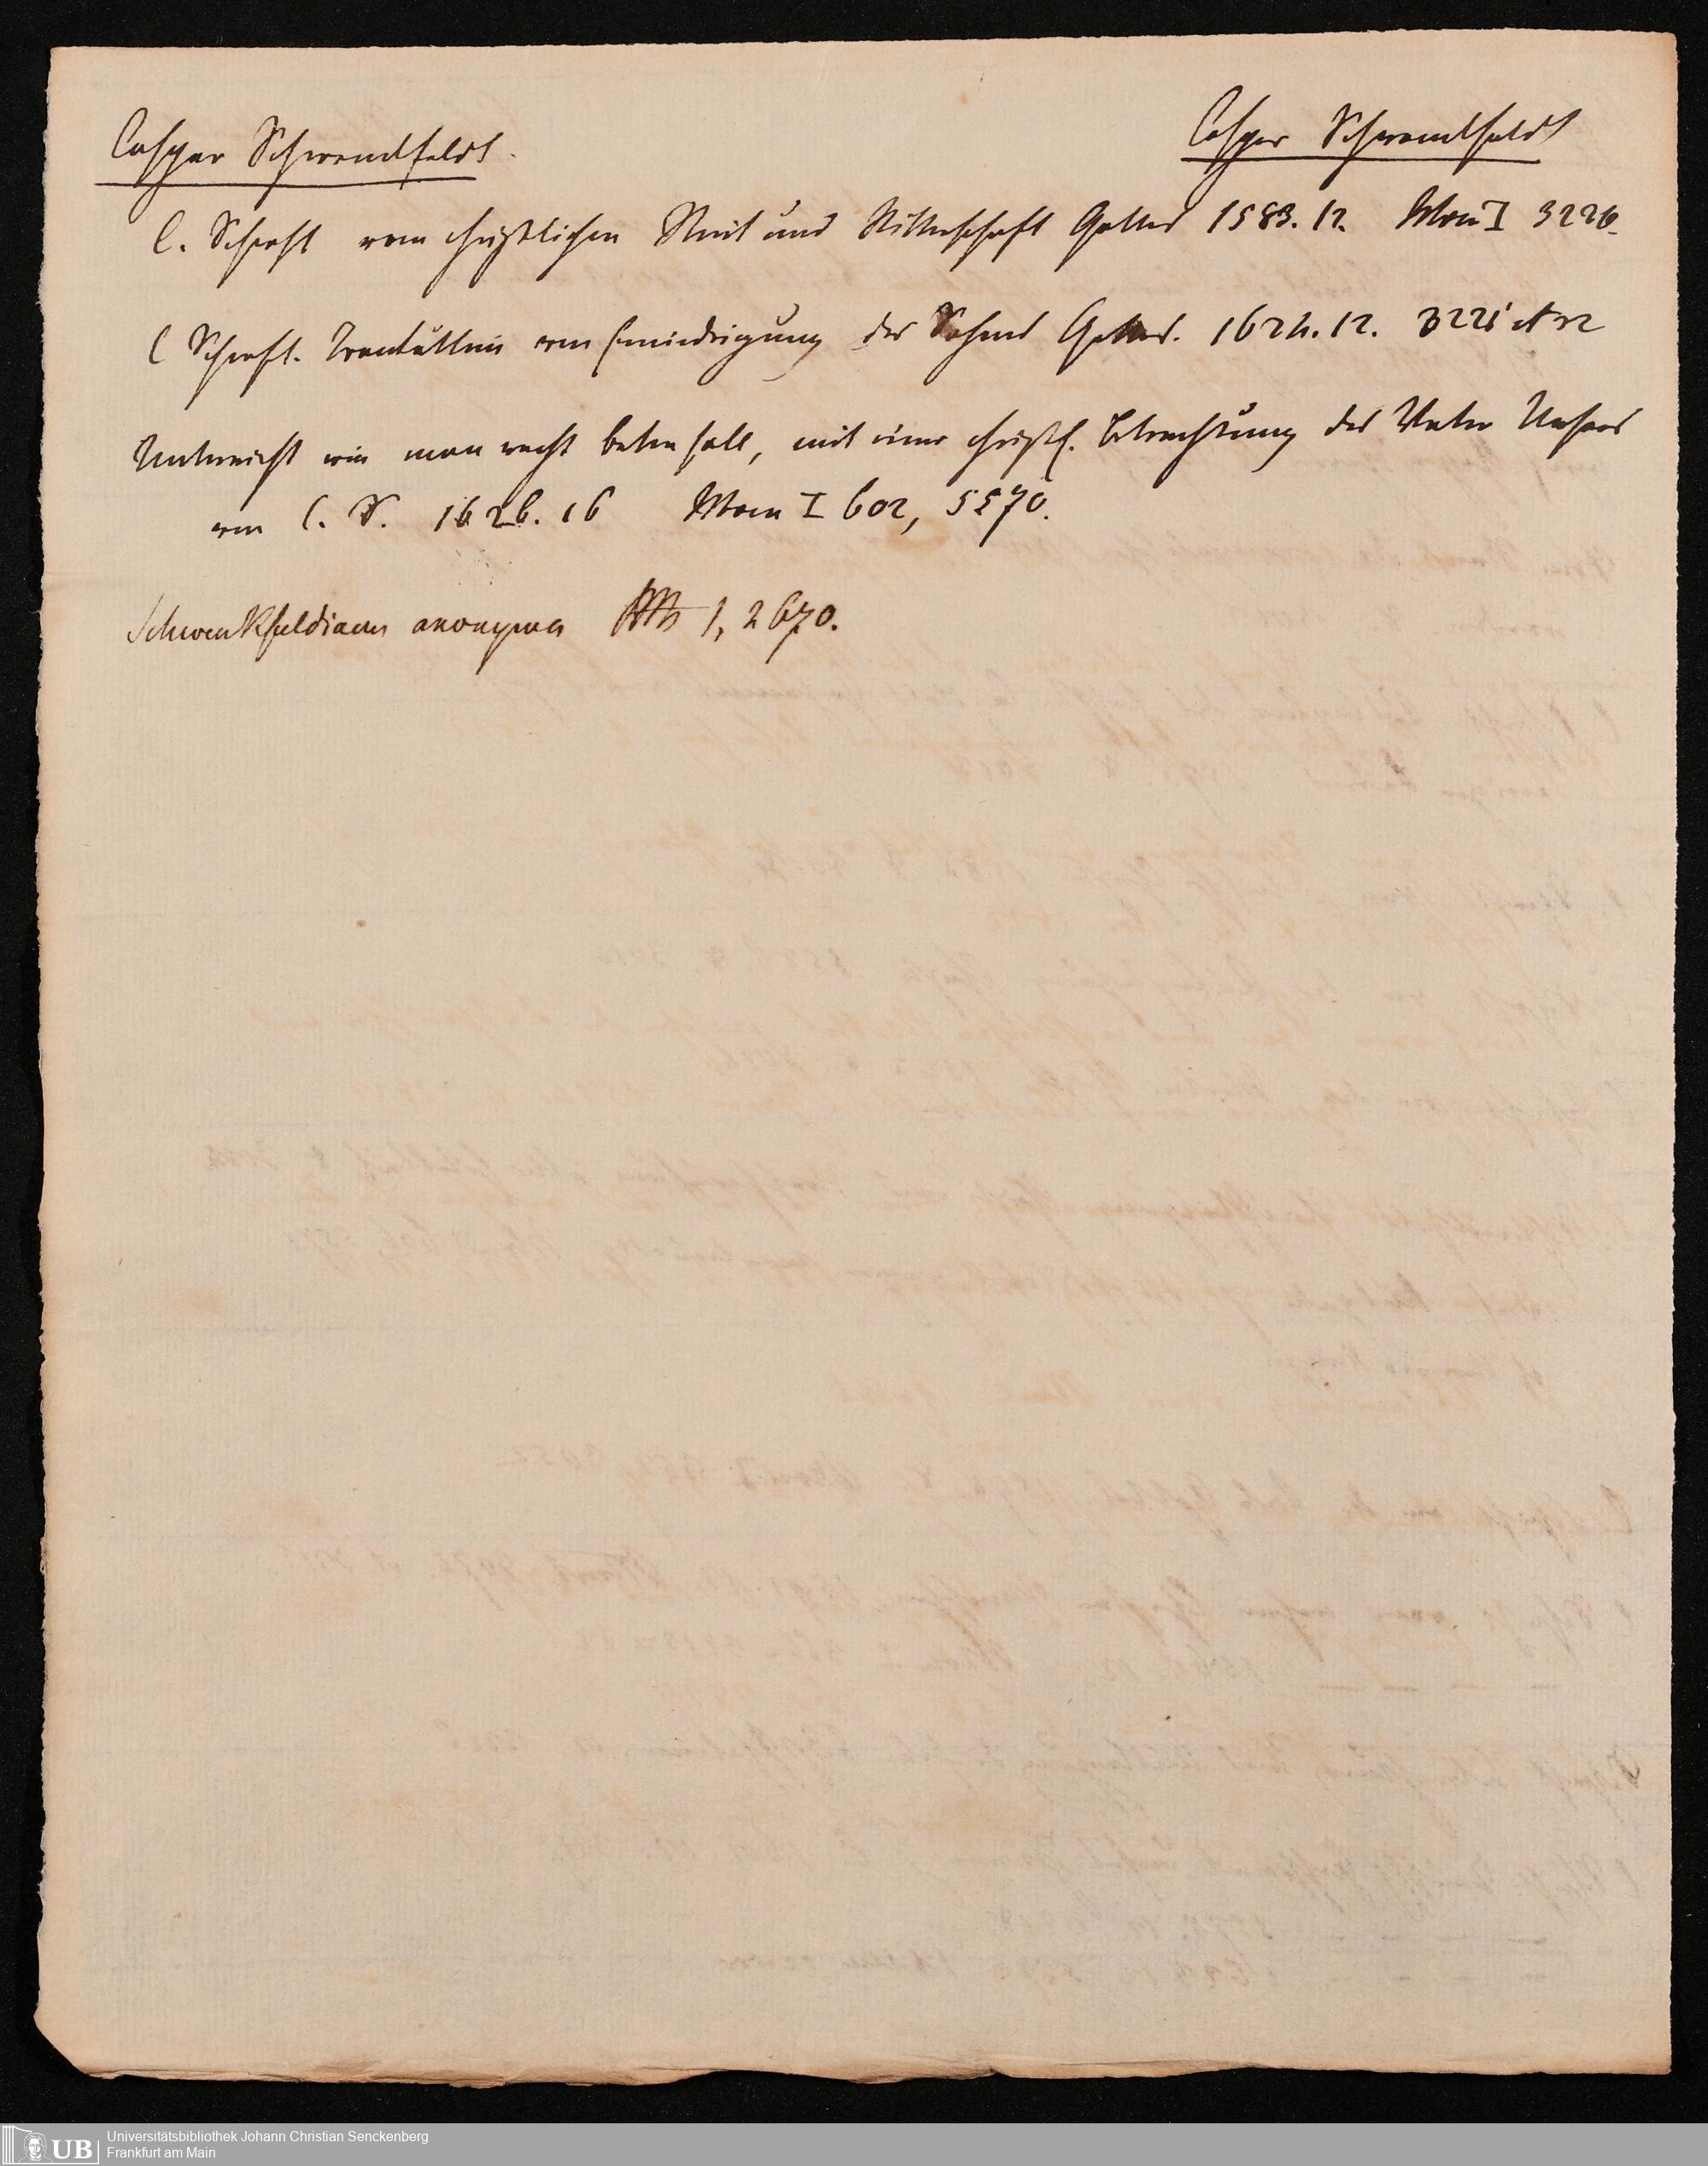 Caspar Schwenckfeldt.
Caspar Schwenckfeldt
C. Schw[...]ft vom christlichen Streit und Ritterschaft Gottes 1583. 12. Mon I 3226.
C Schw[...]ft. von Erniedrigung des Sohnes Gottes. 1624. 12. et 32
Unterricht wie man recht beten soll, mit einer christl. Betrachtung des Vater Unsers
von C. S. 1626. 16 Mon I 602, 5570.
Schwenkfeldiana anonyma 1, 2670.
Universitätsbibliothek Johann Christian Senckenberg
Frankfurt am Main
UB